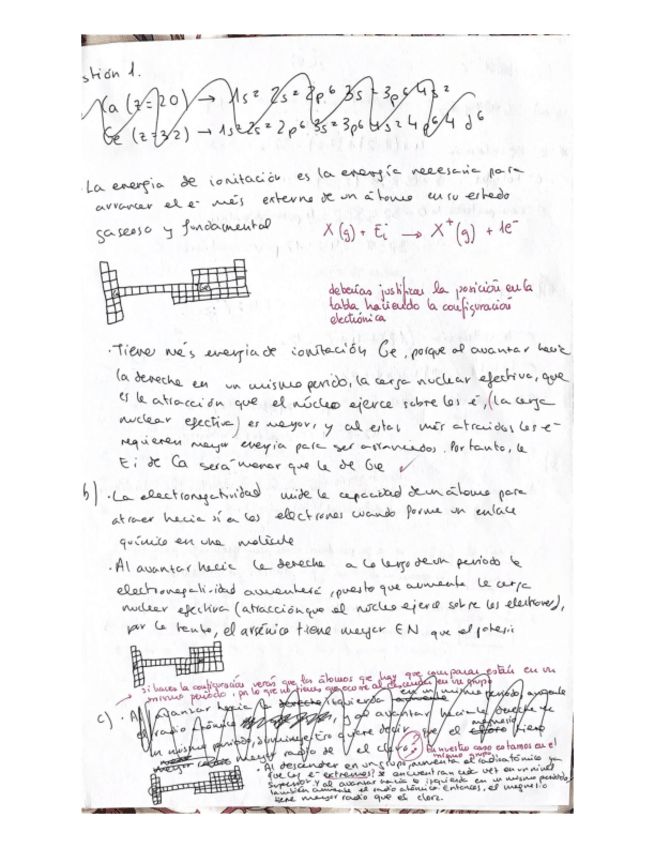 stión 1.
Ca (z=20) → 1s² 2s² 2p⁶ 3s² 3p⁶ 4s²
Ge (z=32) → 1s² 2s² 2p⁶ 3s² 3p⁶ 4s² 4p⁶ 4d⁶
La energía de ionización es la energía necesaria para
arrancar el e⁻ más externo de un átomo en su estado
gaseoso y fundamental
X(g) + Ei → X⁺(g) + 1e⁻
deberías justificar la posición en la
tabla haciendo la configuración
electrónica
· Tiene más energía de ionización Ge, porque al avanzar hacia
la derecha en un mismo periodo, la carga nuclear efectiva, que
es la atracción que el núcleo ejerce sobre los e⁻, (la carga
nuclear efectiva) es mayor, y al estar más atraidos los e⁻
requieren mayor energía para ser arrancados. Por tanto, la
Ei de Ca será menor que la de Ge ✓
b) · La electronegatividad mide la capacidad de un átomo para
atraer hacia sí a los electrones cuando forma un enlace
químico en una molécula
· Al avanzar hacia la derecha a lo largo de un periodo la
electronegatividad aumentará, puesto que aumenta la carga
nuclear efectiva (atracción que el núcleo ejerce sobre los electrones),
por lo tanto, el arsénico tiene mayor EN que el potasio
si haces la configuración verás que los átomos que hay que comparar están en un
mismo periodo, por lo que no tienes que
c) · Al avanzar hacia la derecha izquierda en un mismo periodo, aumenta
el radio atómico y al avanzar hacia la derecha en
un mismo periodo, disminuye. Eso quiere decir que el magnesio tiene
mayor radio el cloro.
En nuestro caso estamos en el
mismo grupo
· Al descender en un grupo, aumenta el radio atómico ya
que los e⁻ extremos? se encuentran cada vez en un nivel
superior y al avanzar hacia la izquierda en un mismo periodo,
también aumenta el radio atómico. Entonces, el magnesio
tiene mayor radio que el cloro.